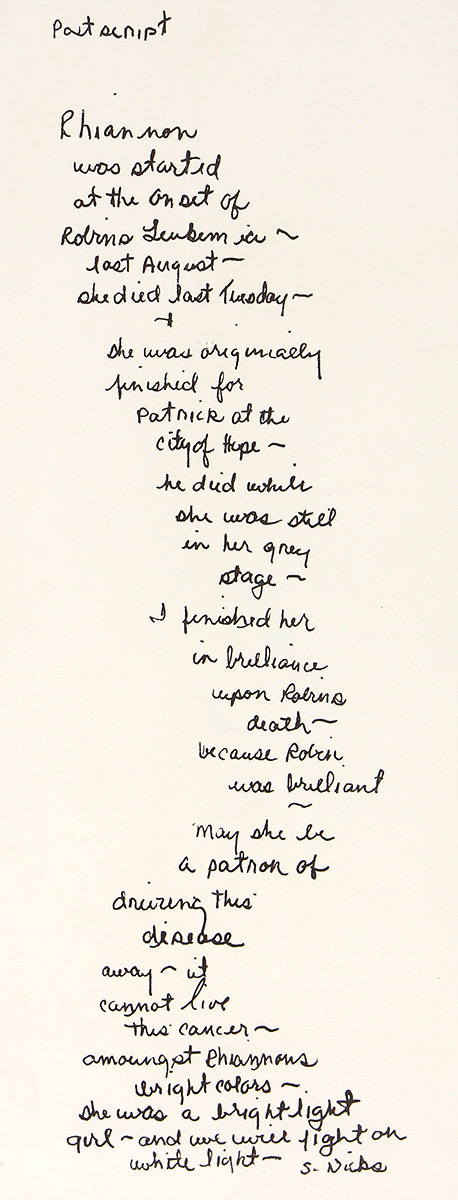 Postscript
Rhiannon
was started
at the onset of
Robins Leukemia ~
last August ~
she died last Tuesday ~
+
she was originially
finished for
Patrick at the
city of Hope ~
he died while
she was still
in her grey
stage ~
I finished her
in brilliance
upon Robins
death ~
because Robin
was brilliant
~
May she be
a patron of
driving this
disease
away ~ it
cannot live
this cancer ~
amoungst Rhiannons
bright colors ~
she was a bright light
girl ~ and we will fight on
white light ~ S. Nicks